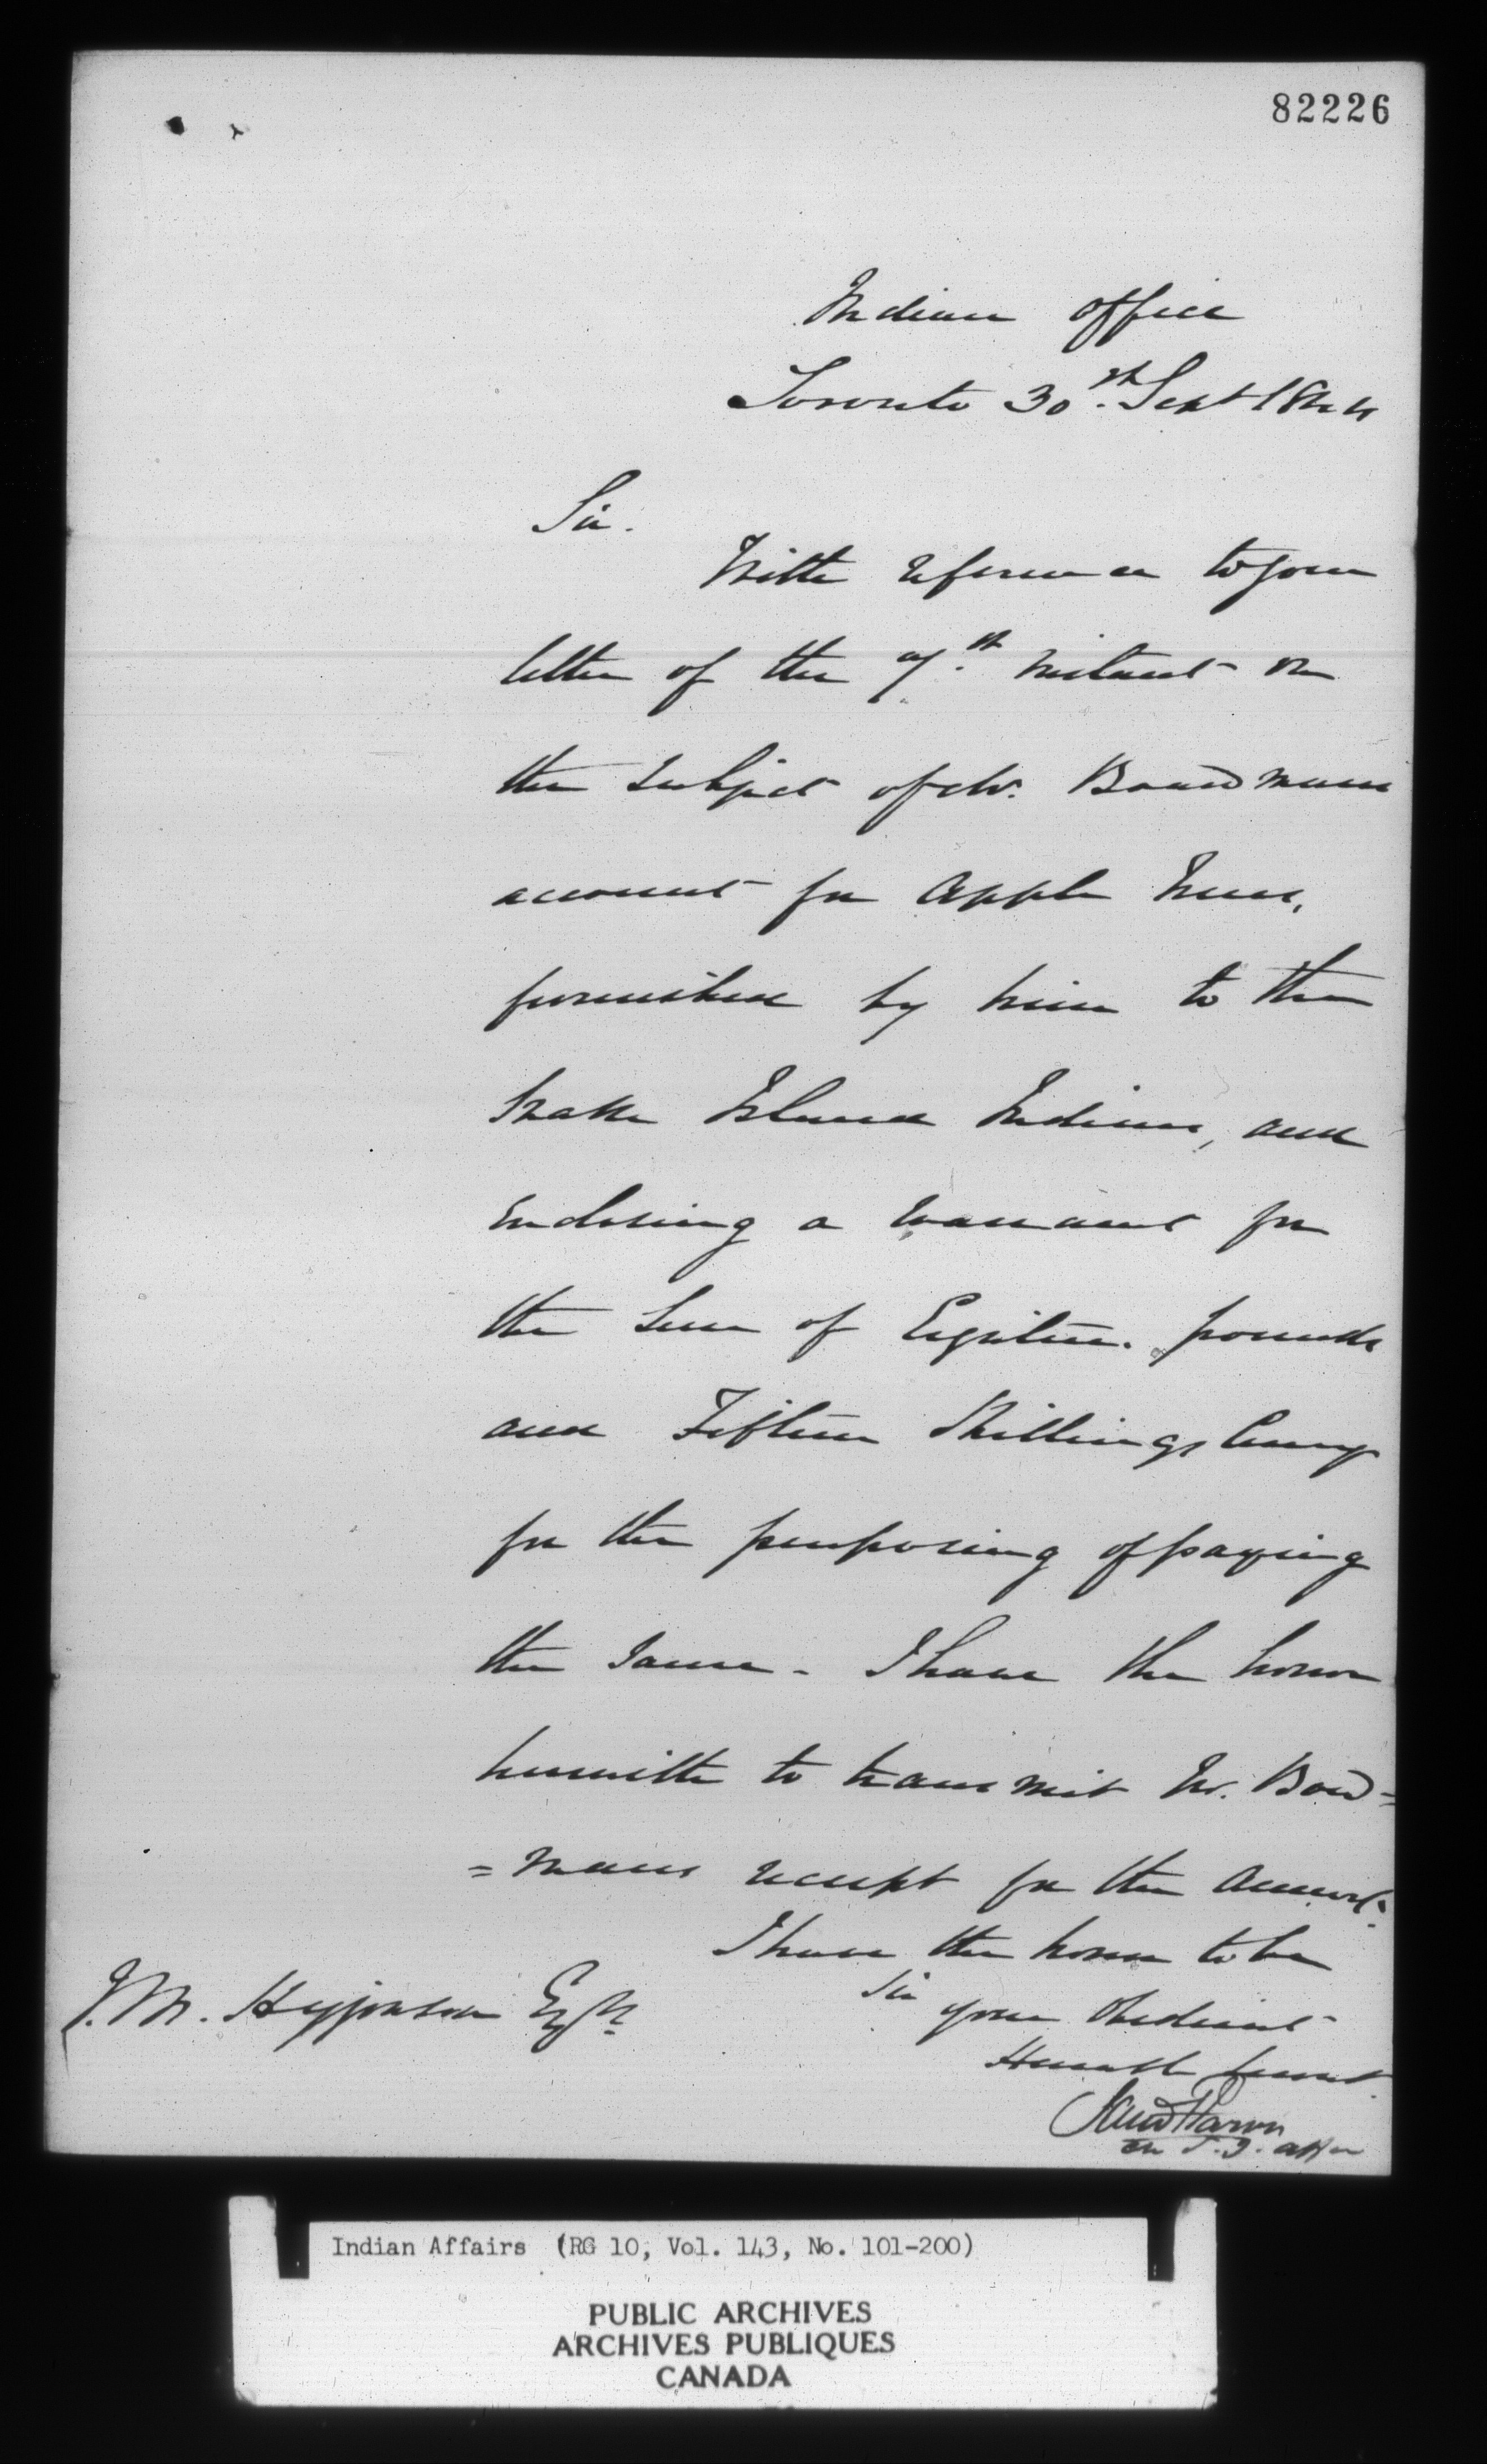 82226
Indian Office
Toronto 30th Sept 1844
Sir.
With reference to your
letter of the 7th instant on
the subject of Mr. Boardmans
account for apple trees,
furnished by him to the
Snake Island Indians, and
enclosing a warrant for
the sum of Eighteen pounds
and Fifteen Shillings Curcy
for the purposing of paying
the same - I have the honor
herewith to transmit Mr. Board=
=mans receipt for the amount.
I have the honor to be
Sir
your Obedient
Humble Servt.
J.M. Higginson Esqr.
Indian Affairs (RG 10, Vol. 143, No. 101-200)
PUBLIC ARCHIVES
ARCHIVES PUBLIQUES
CANADA